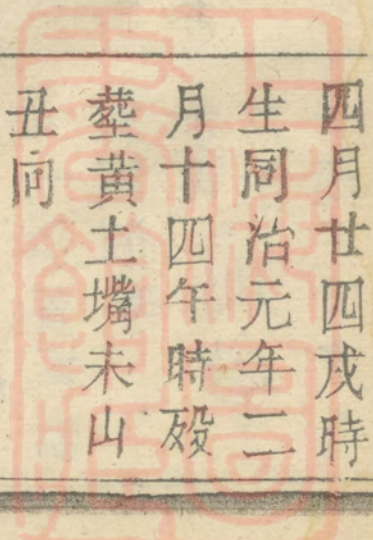 四月廿四戌時
生同治元年二
月十四午時殁
塟黄土嘴未山
丑向